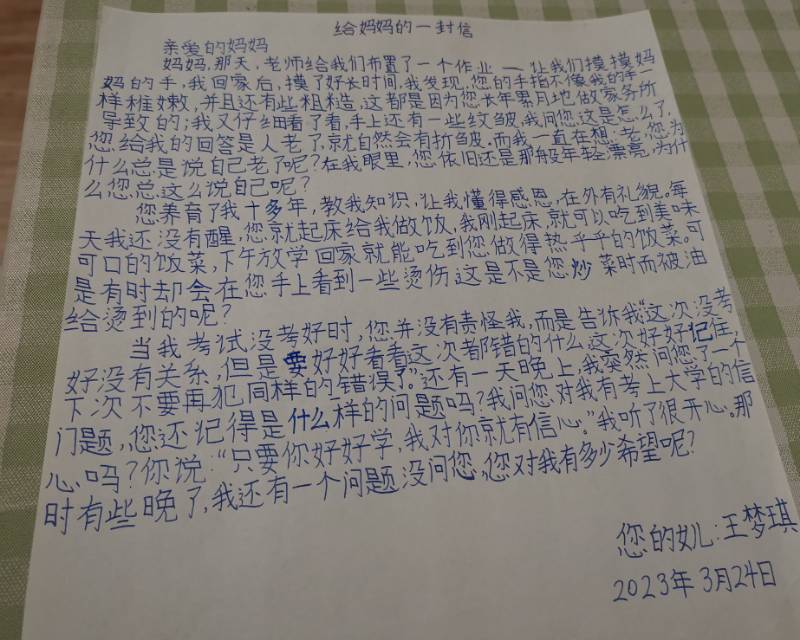 给妈妈的一封信
亲爱的妈妈
妈妈,那天,老师给我们布置了一个作业——让我们摸摸妈
妈的手,我回家后,摸了好长时间,我发现,您的手指不像我的手一
样稚嫩,并且还有些粗糙,这都是因为您长年累月地做家务所
导致的;我又仔细看了看,手上还有一些纹皱,我问您这是怎么了,
您给我的回答是人老了,就自然会有折皱。而我一直在想:老,您为
什么总是说自己老了呢?在我眼里,您依旧还是那般年轻漂亮,为什
么您总这么说自己呢?
您养育了我十多年,教我知识,让我懂得感恩,在外有礼貌。每
天我还没有醒,您就起床给我做饭,我刚起床,就可以吃到美味
可口的饭菜,下午放学回家就能吃到您做得热乎乎的饭菜。可
是有时却会在您手上看到一些烫伤,这是不是您炒菜时而被油
给烫到的呢?
当我考试没考好时,您并没有责怪我,而是告诉我“这次没考
好没有关系,但是要好好看看这次都错的什么,这次好好记住,
下次不要再犯同样的错误了。”还有一天晚上,我突然问您了一个
问题,您还记得是什么样的问题吗?我问您对我有考上大学的信
心吗?你说:“只要你好好学,我对你就有信心。”我听了很开心。那
时有些晚了,我还有一个问题没问您,您对我有多少希望呢?
您的女儿:王梦琪
2023年3月24日